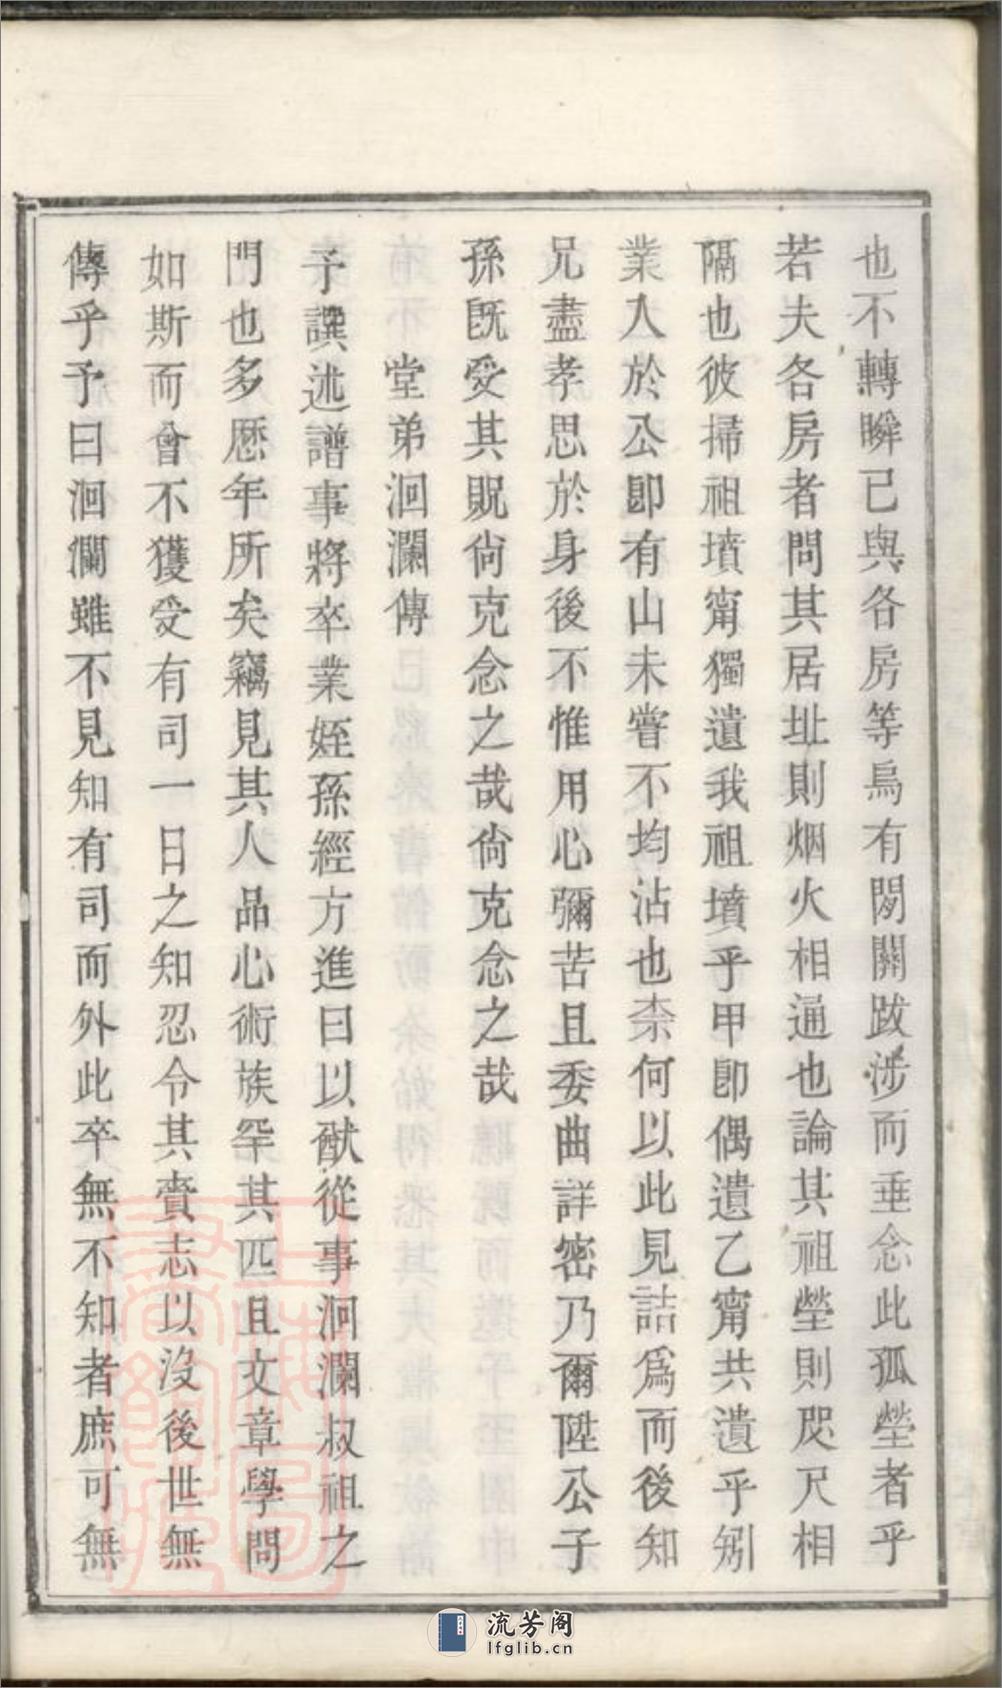 也不轉瞬已與各房等烏有閒關跋涉而垂念此孤塋者乎
若夫各房者問其居址則烟火相通也論其祖塋則咫尺相
隔也彼掃祖墳甯獨遺我祖墳乎甲卽偶遺乙甯共遺乎矧
業人於公卽有山未嘗不均沾也柰何以此見詰爲而後知
兄盡孝思於身後不惟用心彌苦且委曲詳密乃爾陞公子
孫旣受其貺尙克念之哉尙克念之哉
堂弟洄瀾傳
予譔述譜事將卒業姪孫經方進曰以猷從事洄瀾叔祖之
門也多歷年所矣竊見其人品心術族罕其匹且文章學問
如斯而會不獲受有司一日之知忍令其賫志以沒後世無
傳乎予曰洄瀾雖不見知有司而外此卒無不知者庶可無
上海圖書館藏
流芳阁
lfglib.cn